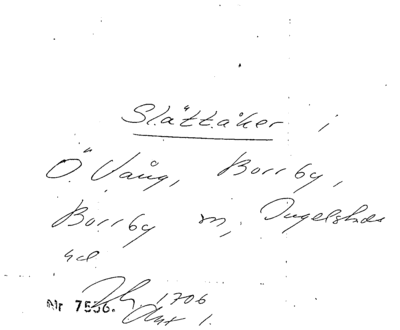 Slättåker i
Ö. Vång, Borrby,
Borrby sn, Ingelstads
hd
1706
Nr 7556. Akt 1.